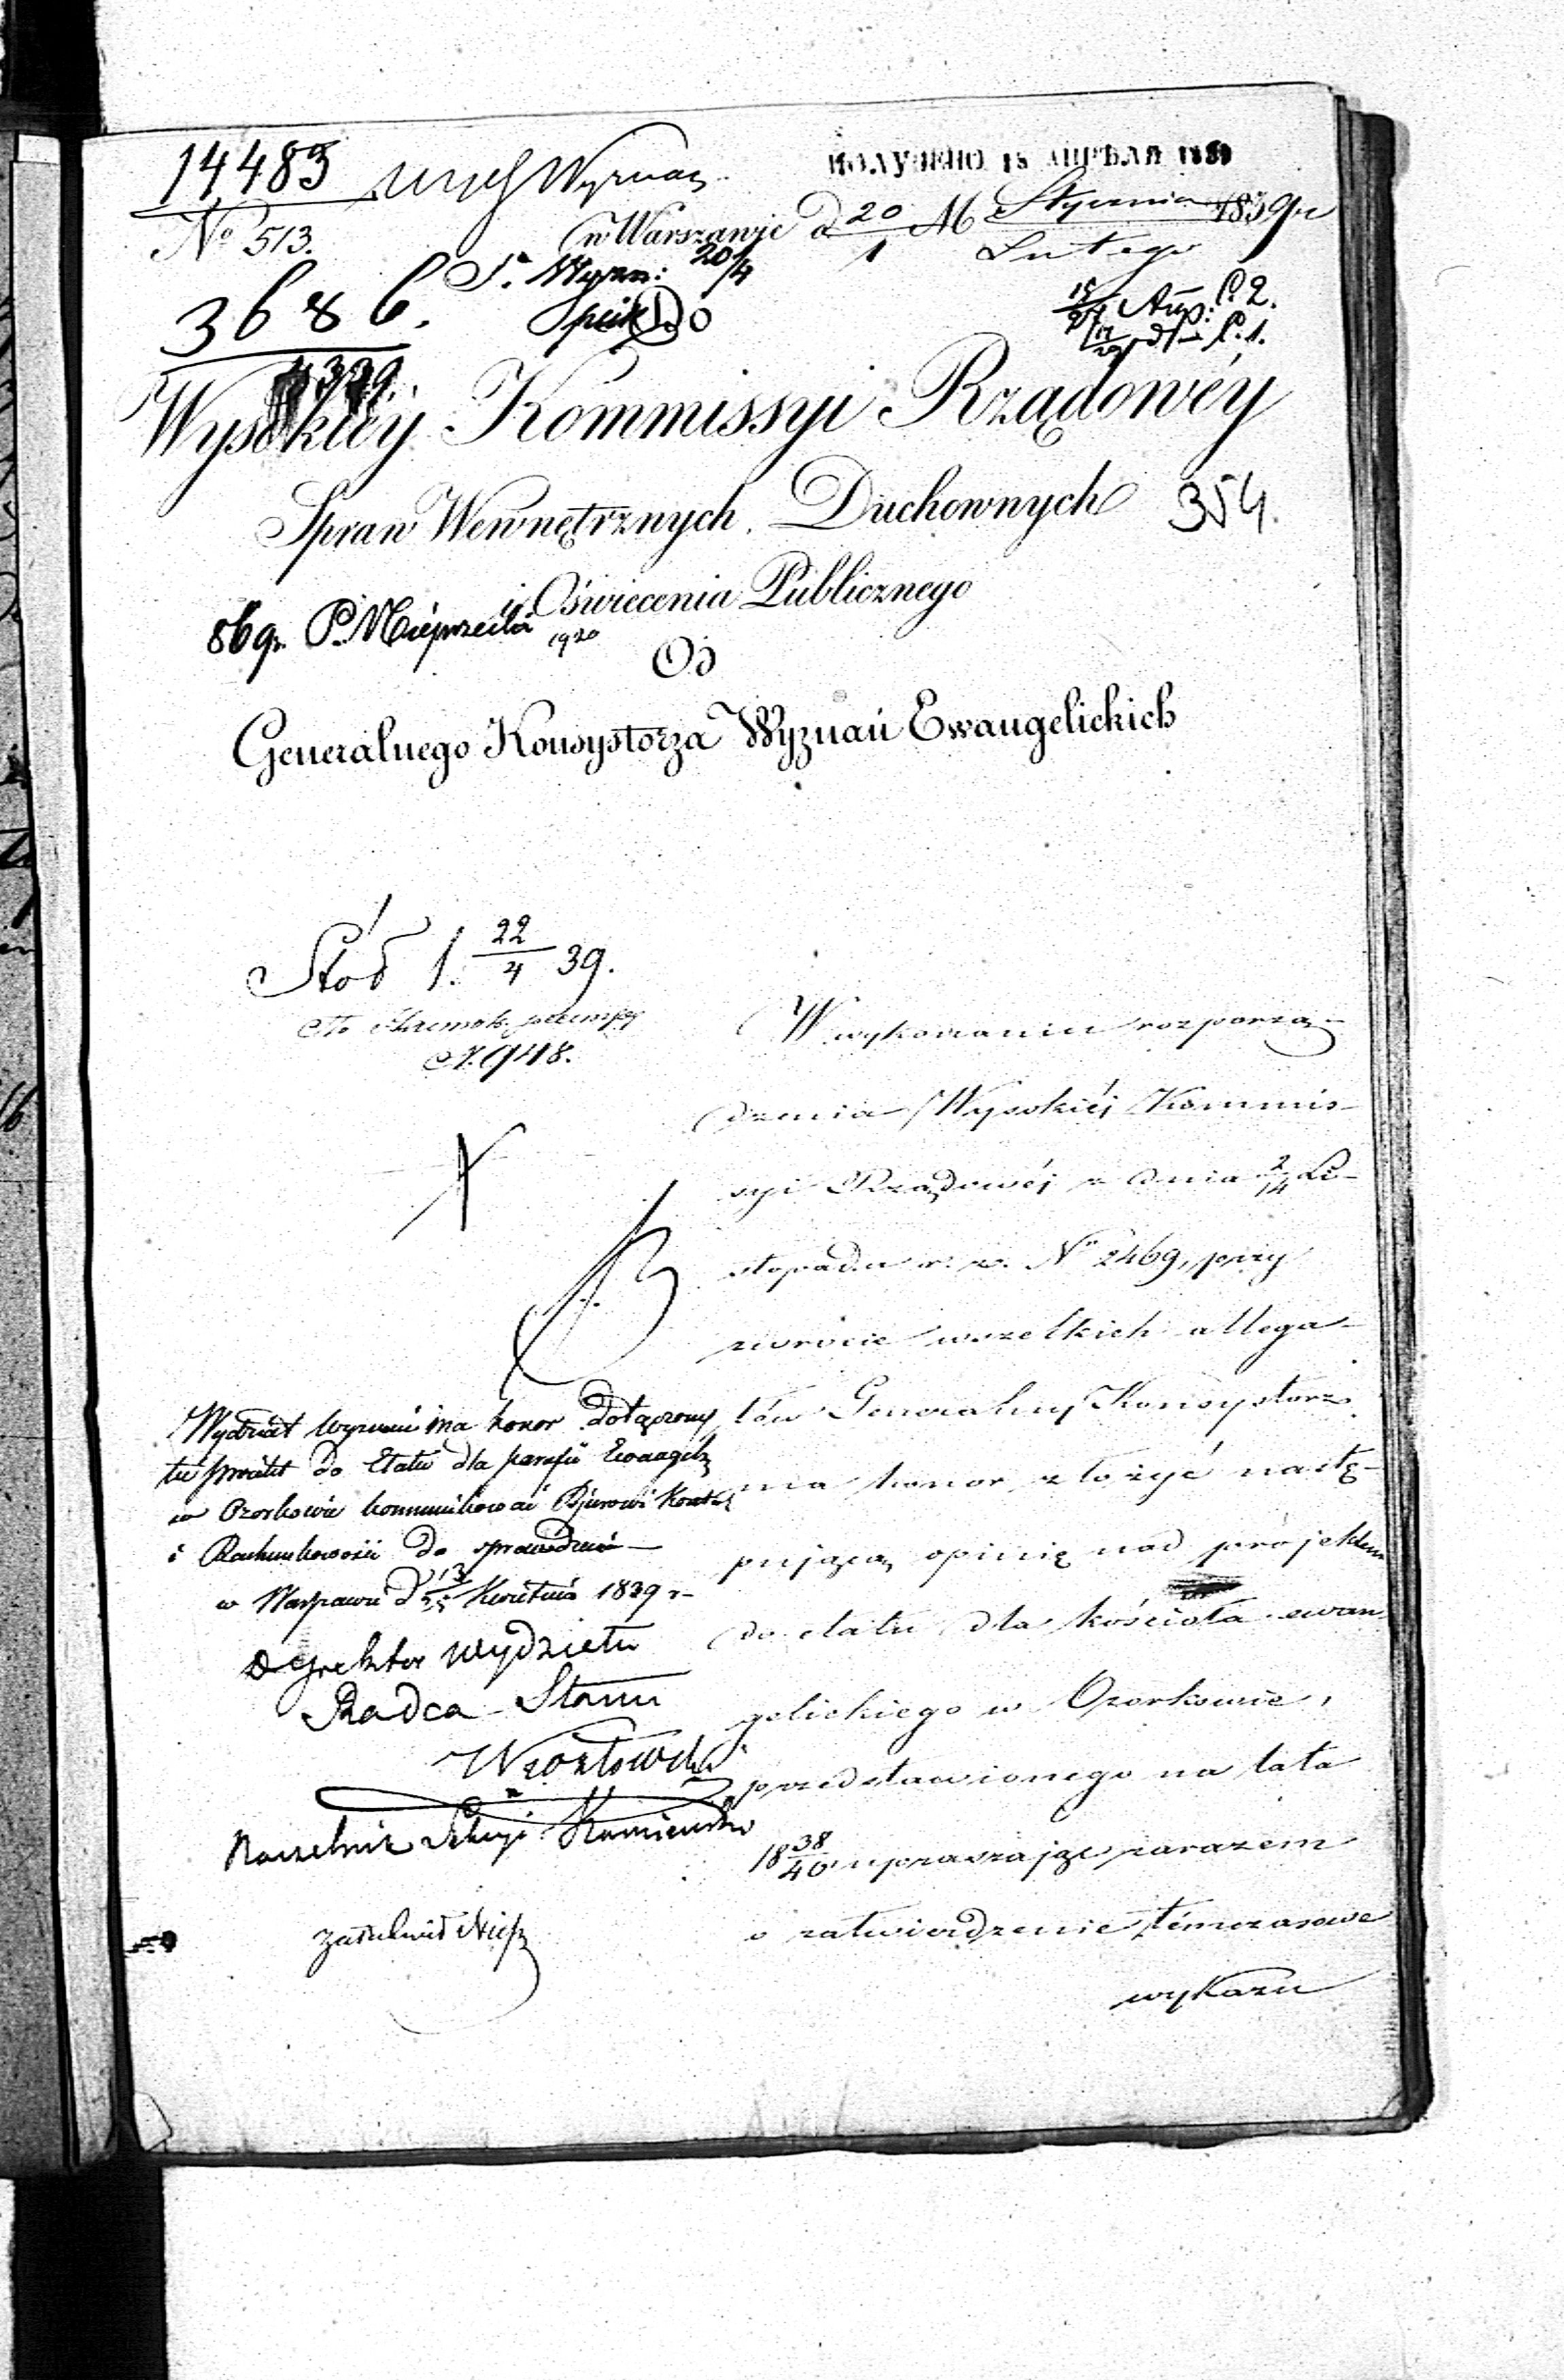 14483 Wyznań
ПОЛУЧЕНО 18 АПРѢЛЯ 1839
No 513.
w Warszawie d 20/1 M Stycznia/Lutego 1839 r
20/4
3686.
P. 2.
P. 1.
4339.
Wysokiéy Kommissyi Rządowéy
Spraw Wewnętrznych Duchownych 354.
i Oświecenia Publicznego
869.
Od
Generalnego Konsystorza Wyznań Ewangelickich
22/4 39.
948.
W wykonaniu rozporzą-
dzenia Wysokiéj Kommis-
syi Rządowéj z dnia 2/14 Li-
stopada r. z. No 2469, przy
zwrocie wszelkich allega-
tów Generalny Konsystorz
ma honor złożyć nastę-
pującą opinię nad projektem
do etatu dla kościoła ewan-
gelickiego w Ozorkowie,
przedstawionego na lata
18 38/40 upraszając zarazem
o zatwierdzenie témczasowe
wykazu
Wydział Wyznań ma honor dołączony
tu projekt do Etatu dla parafii Ewangelz
w Ozorkowie kommunikować Bjurowi Kontroli
i Rachunkowości do sprawdzenia
w Warszawie d 13/25 Kwietnia 1839 r
Dyrektor Wydziału
Radca Stanu
Naczelnik Sekcyi Kamieński
załatwił